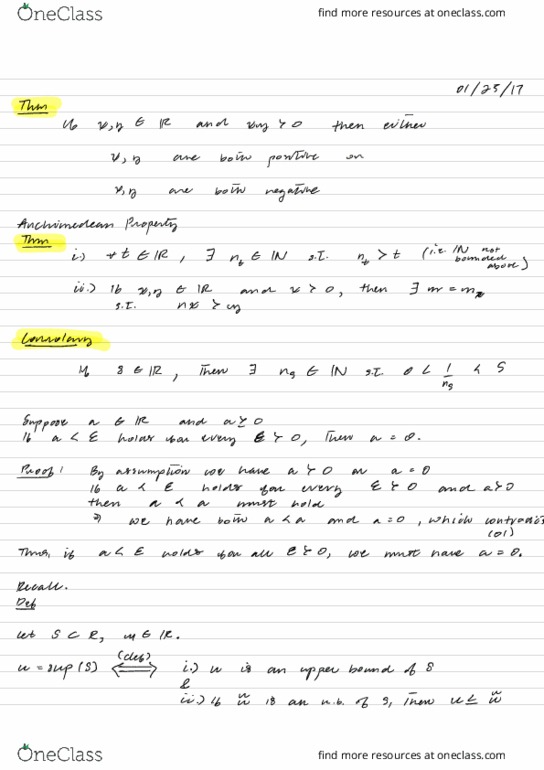 OneClass
find more resources at oneclass.com
01/25/17
Thm
If x,y ∈ ℝ and xy > 0 then either
x,y are both positive or
x,y are both negative
Archimedean Property
Thm
i.) ∀ t ∈ ℝ, ∃ n_t ∈ ℕ s.t. n_t > t (i.e. ℕ not bounded above)
ii.) If x,y ∈ ℝ and x > 0, then ∃ n =
s.t. nx > y
Corollary
If s ∈ ℝ, Then ∃ n_s ∈ ℕ s.t. 0 < 1/n_s < s
Suppose a ∈ ℝ and a ≥ 0
If a < ε holds for every ε > 0, Then a = 0.
Proof: By assumption we have a > 0 or a = 0
If a < ε holds for every ε > 0 and a > 0
then a < a must hold
⇒ we have both a < a and a = 0, which contradic
(01)
Thus, if a < ε holds for all ε > 0, we must have a = 0.
Recall.
Def
Let S ⊂ R, u ∈ ℝ.
u = sup(S) (def) ⟺ i.) u is an upper bound of S
&
ii.) If ũ is an u.b. of S, Then u ≤ ũ
OneClass
find more resources at oneclass.com